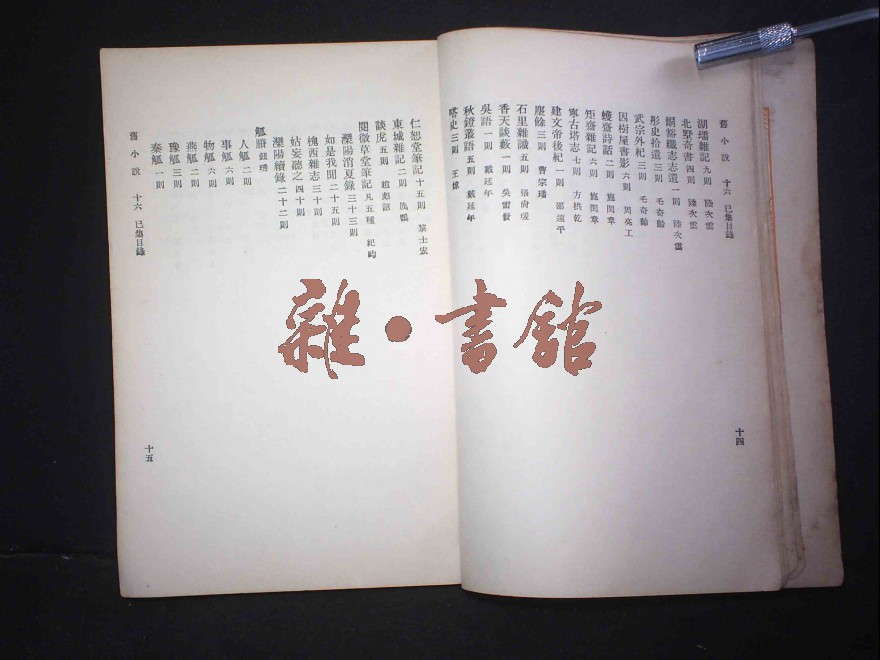 舊小說 十六 已集目錄
湖壖雜記九則 陸次雲
北墅奇書四則 陸次雲
峒谿纖志志遺一則 陸次雲
彤史拾遺三則 毛奇齡
武宗外紀三則 毛奇齡
因樹屋書影六則 周亮工
蠖齋詩話二則 施閏章
矩齋雜記六則 施閏章
寧古塔志七則 方拱乾
建文帝後紀一則 邵遠平
塵餘三則 曹宗璠
石里雜識五則 張尙瑗
香天談藪一則 吳雷發
吳語一則 戴延年
秋鐙叢語五則 戴延年
喀史三則 王煒
十四
仁恕堂筆記十五則 黎士宏
東城雜記二則 厲鶚
談虎五則 趙彪詔
閱微草堂筆記凡五種 紀昀
灤陽消夏錄三十三則
如是我聞二十五則
槐西雜志三十則
姑妄聽之四十則
灤陽續錄二十二則
觚賸 鈕琇
人觚二則
事觚六則
物觚六則
燕觚二則
豫觚三則
秦觚一則
舊小說 十六 已集目錄
十五
雜·書館